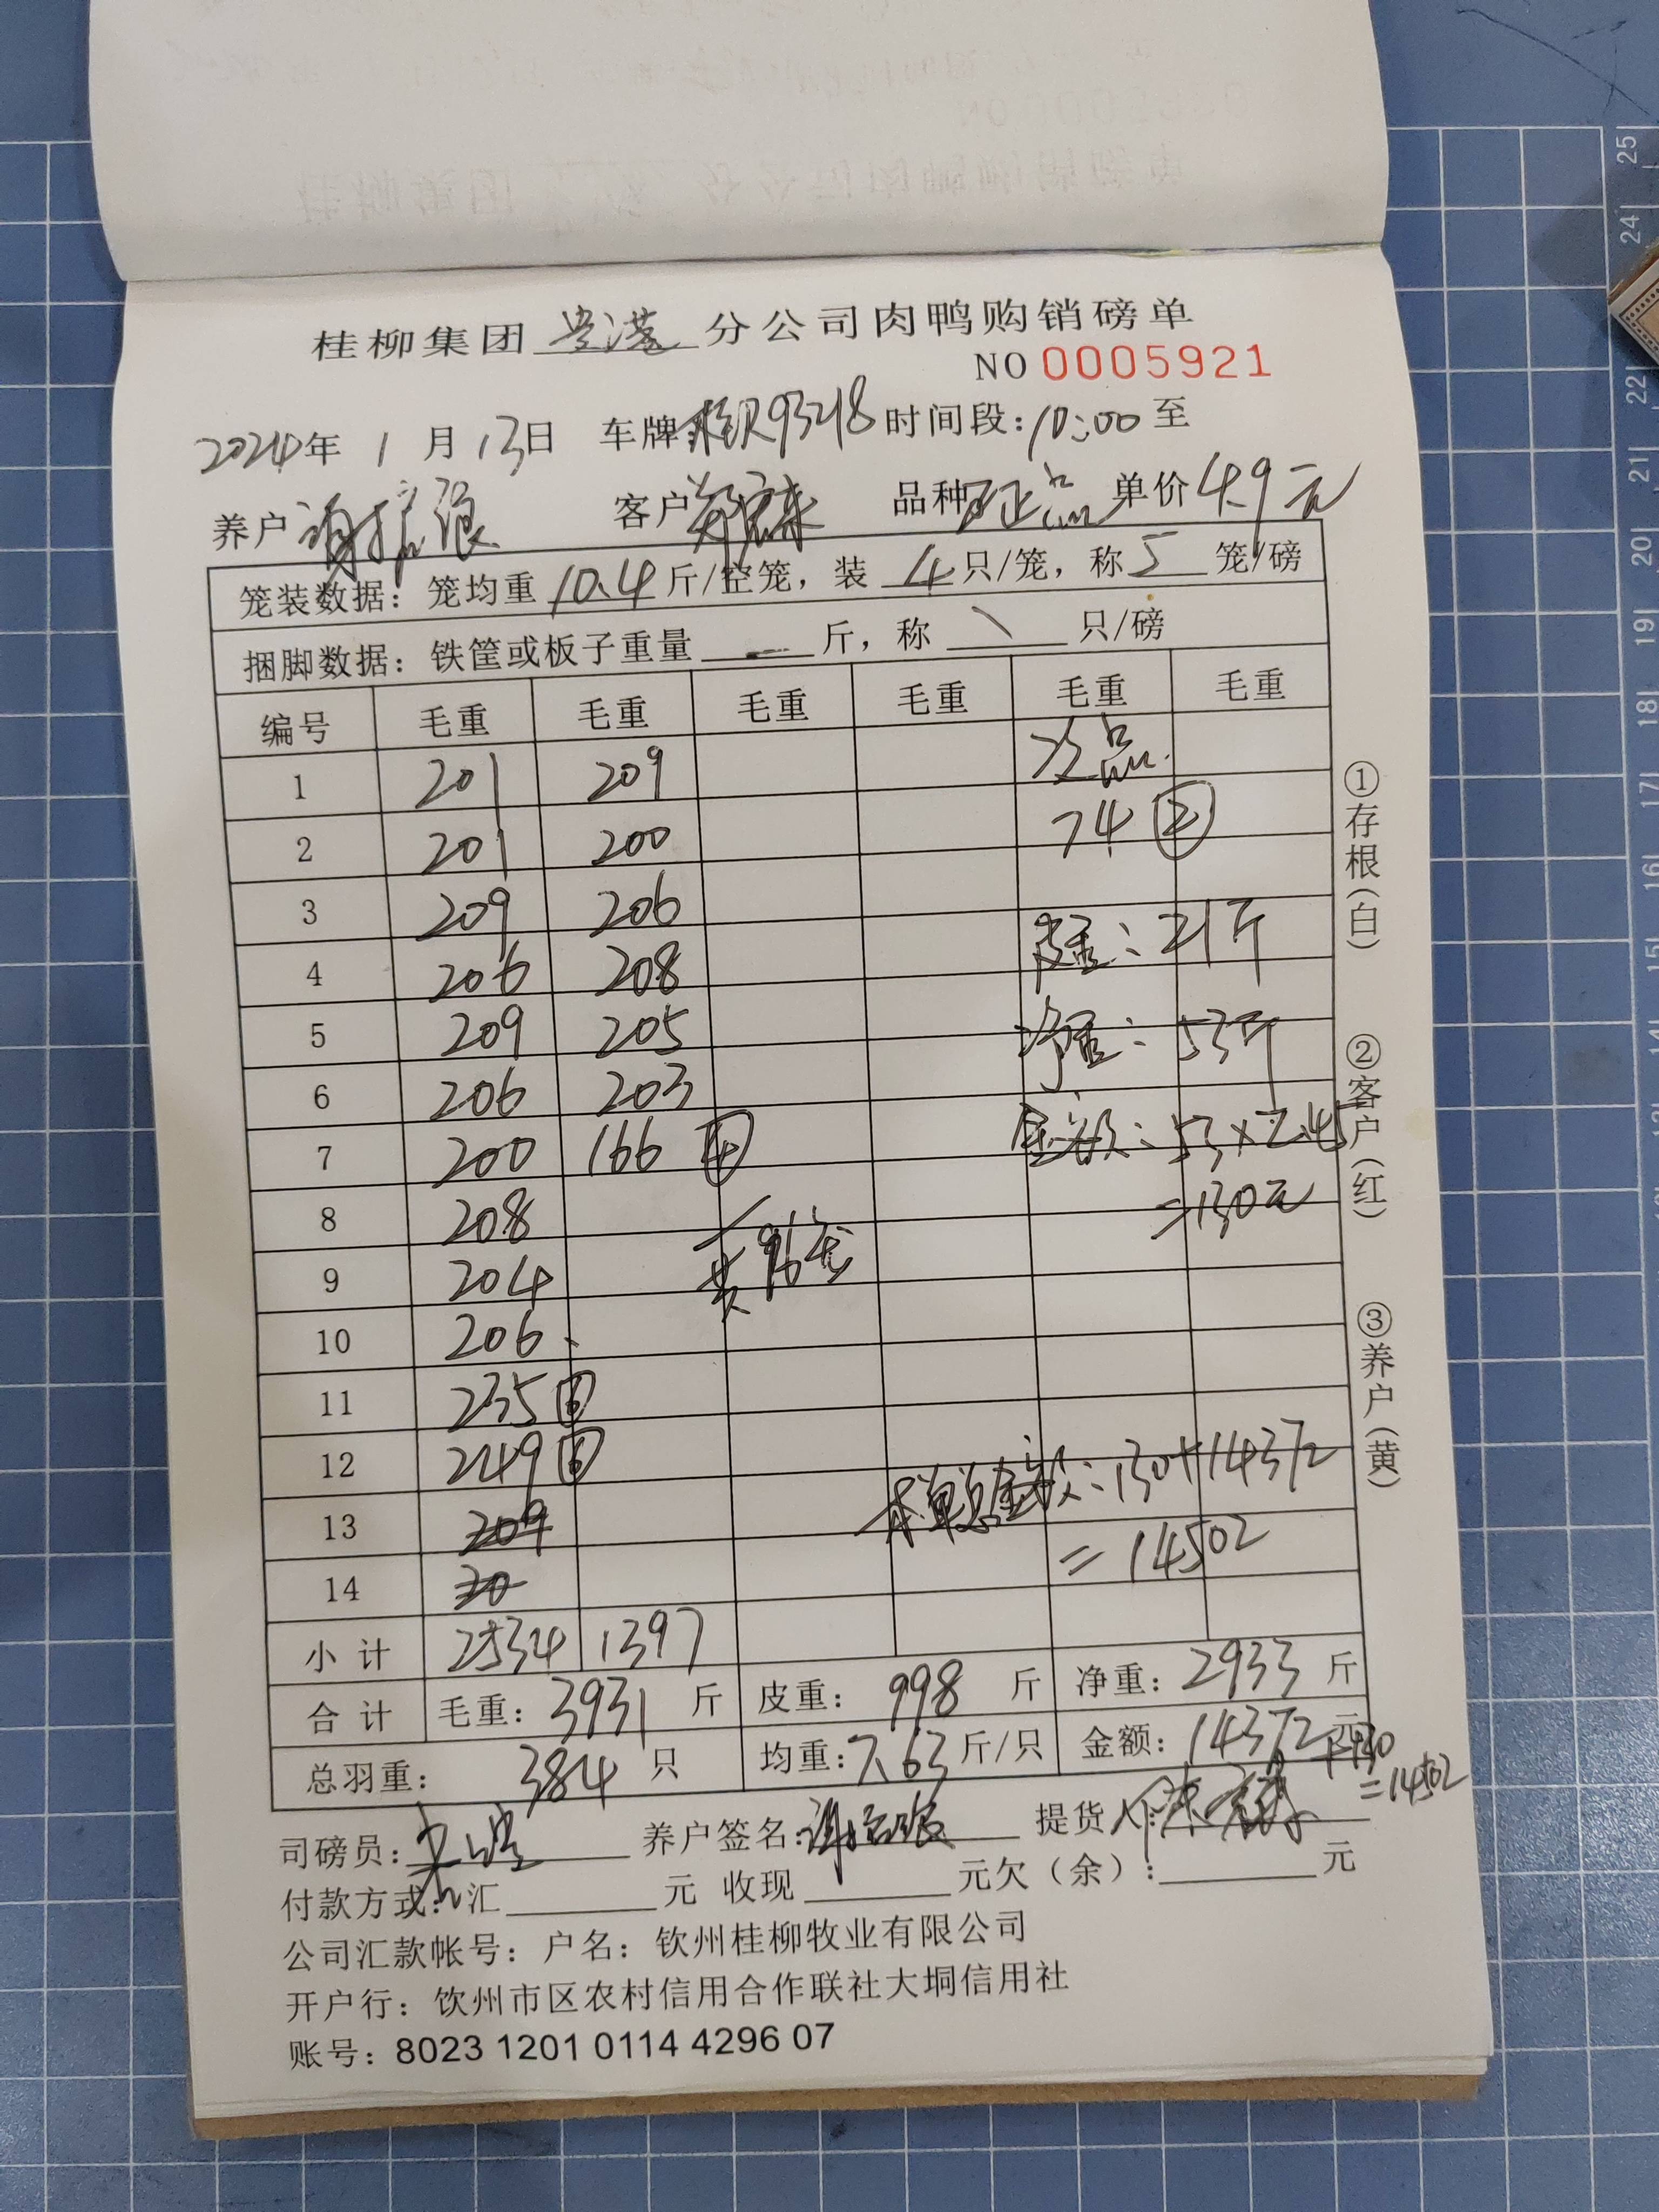 桂柳集团贵港分公司肉鸭购销磅单
NO 0005921
2024年1月13日 车牌 93218 时间段:10:00至
养户 客户 品种 正品 单价4.9元
笼装数据：笼均重10.4斤/空笼，装4只/笼，称5笼/磅
捆脚数据：铁筐或板子重量 — 斤，称 \ 只/磅
编号 毛重 毛重 毛重 毛重 毛重 毛重
1 201 209 次品
2 201 200 74 ②
3 209 206
4 206 208 皮重：21斤
5 209 205 净重：53斤
6 206 203
7 200 166 ④ 金额：53×2.45
8 208 =130元
9 204 共96笼
10 206
11 235 ⑥
12 249 ⑥ 本单总金额：130+14372
13 209
14 20 =14502
小计 2534 1397
合计 毛重：3931斤 皮重：998斤 净重：2933斤
总羽重：384只 均重:7.63斤/只 金额：14372元
+130
=14502
司磅员： 养户签名： 提货人：
付款方式：汇 元 收现 元欠（余）： 元
公司汇款帐号：户名：钦州桂柳牧业有限公司
开户行：钦州市区农村信用合作联社大垌信用社
账号：8023 1201 0114 4296 07
①存根（白）
②客户（红）
③养户（黄）
25
24
22
21
20
19
18
17
16
15
14
13